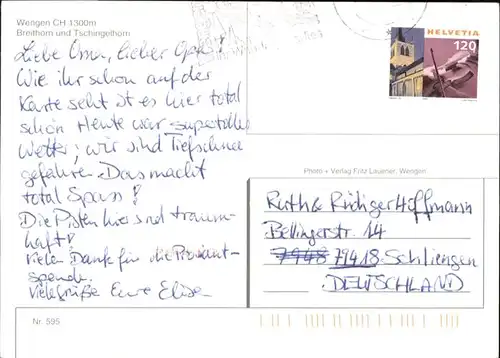 Wengen CH 1300m
Breithorn und Tschingelhorn
Liebe Oma, lieber Opa!
Wie ihr schon auf der
Karte seht ist es hier total
schön Heute war supertolles
Wetter; wir sind Tiefschnee
gefahren. Das macht
total Spass!
Die Pisten hier sind traum-
haft!
vielen Dank für die Proviant-
spende.
viele Grüße Eure Elisa
Nr. 595
HELVETIA
120
Photo + Verlag Fritz Lauener, Wengen
Ruth & Rüdiger Hoffmann
Bellingerstr. 14
7948 79418 Schliengen
DEUTSCHLAND